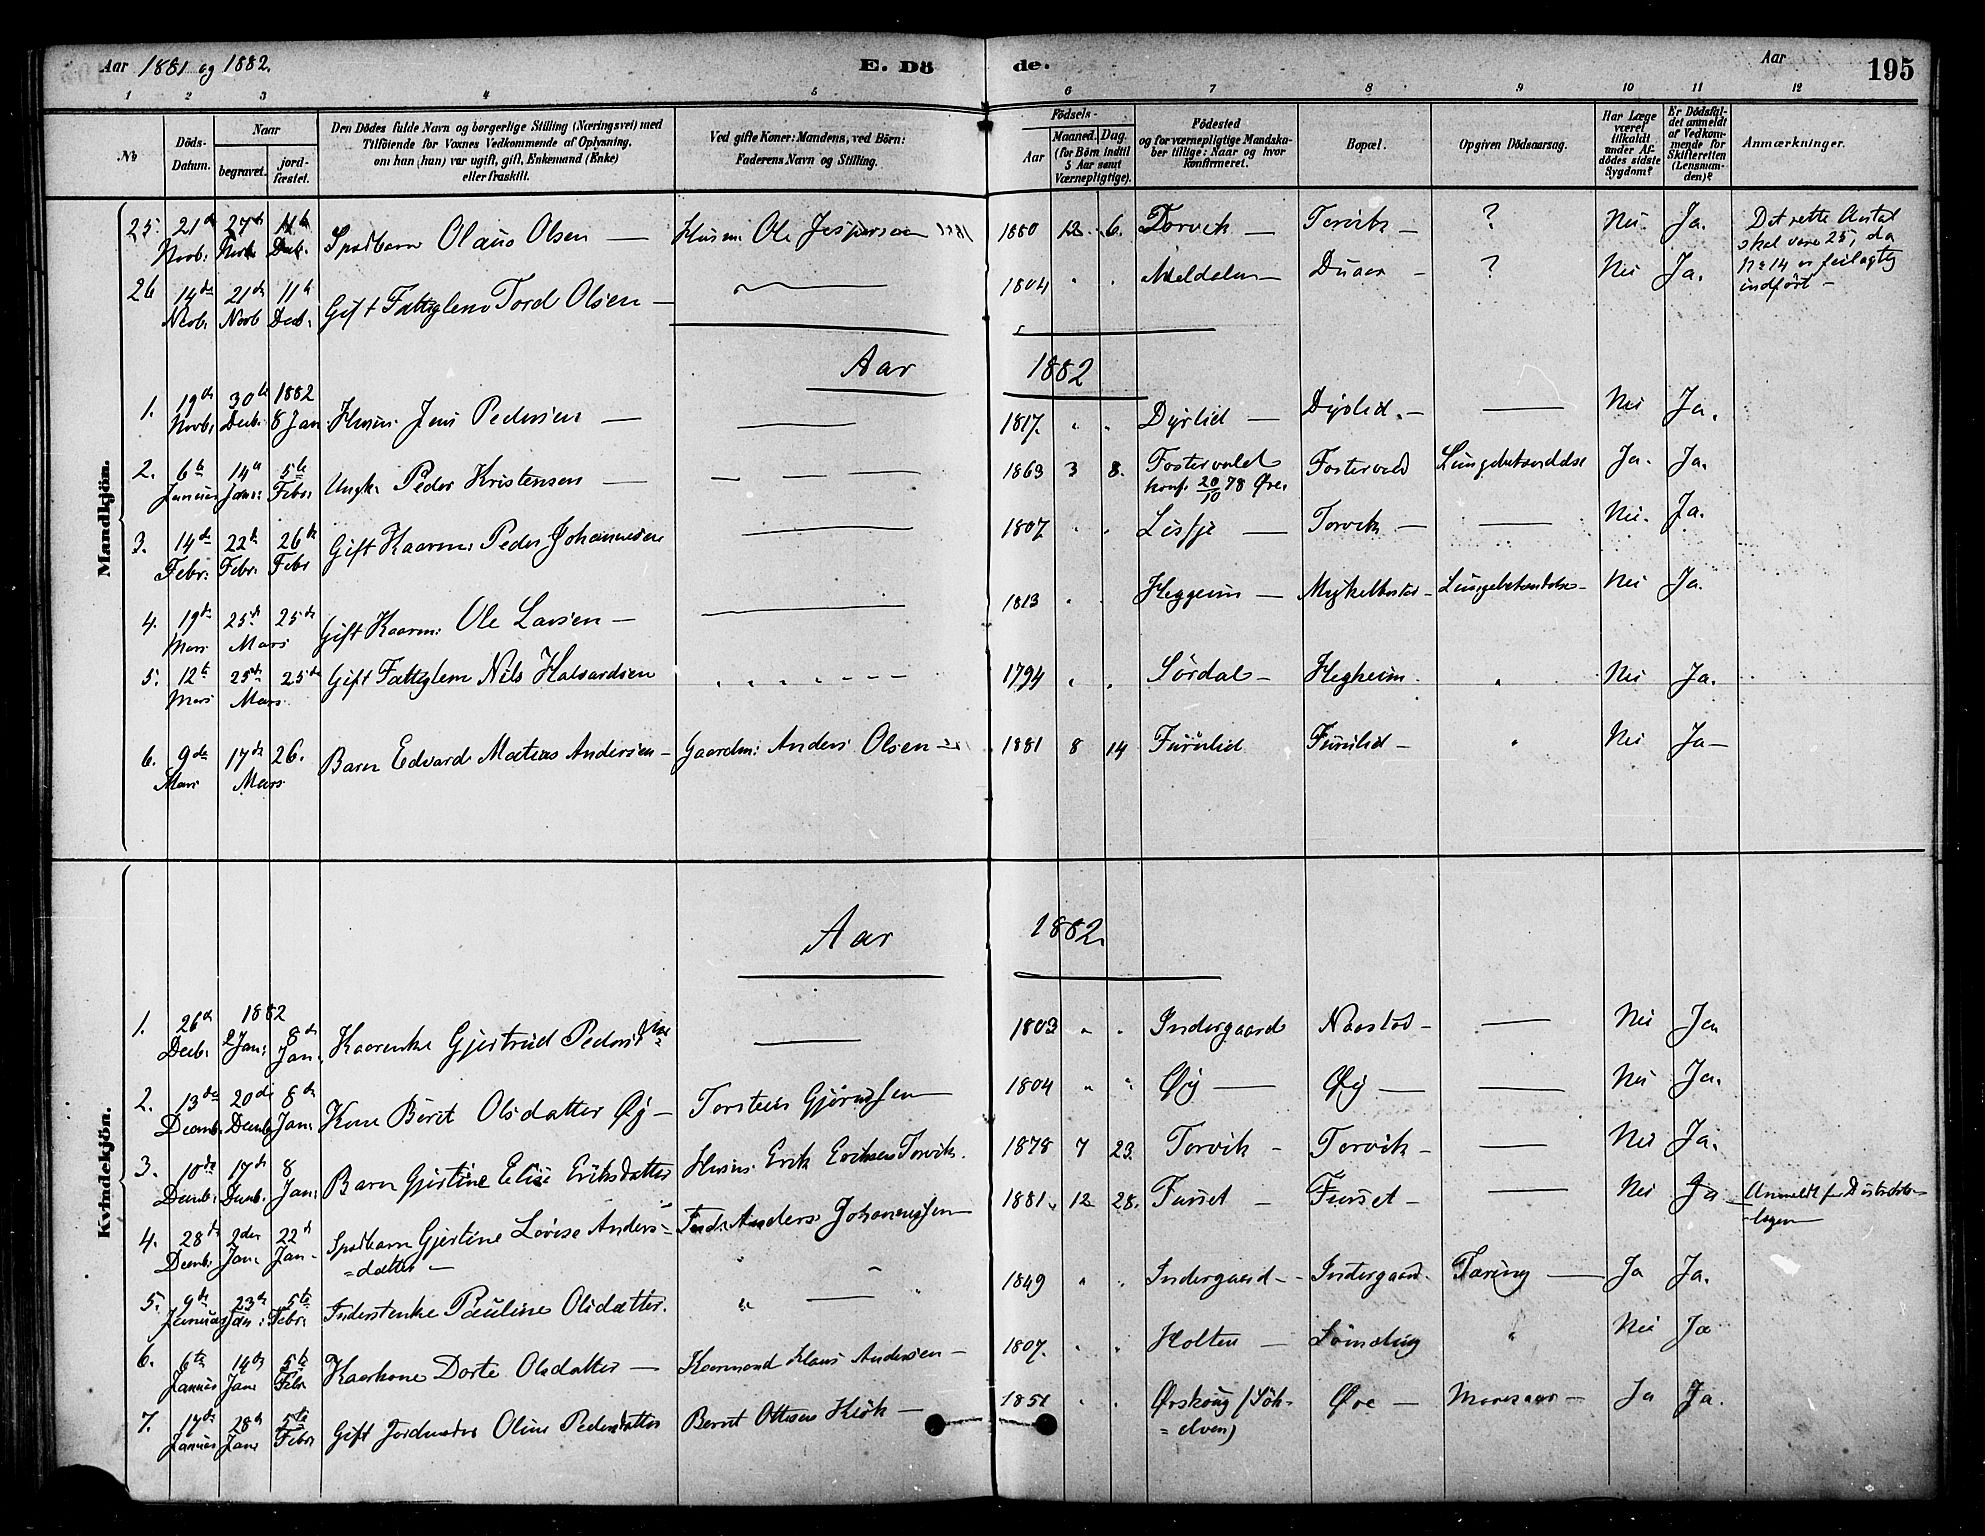 Aar 1881 og 1882. E. Döde. Aar 195
1 2 3 4 5 6 7 8 9 10 11 12
No
Döds-Datum.
Naar
begravet.
jord-fæstet.
Den Dödes fulde Navn og borgerlige Stilling (Næringsvei) med
Tilföiende for Voxnes Vedkommende af Oplysning,
om han (hun) var ugift, gift, Enkemand (Enke)
eller fraskilt.
Ved gifte Koner: Mandens, ved Börn:
Faderens Navn og Stilling.
Födsels-
Aar
Maaned. Dag.
(for Börn indtil
5 Aar samt
Værnepligtige).
Födested
og for værnepligtige Mandska-
ber tillige: Naar og hvor
konfirmeret.
Bopæl.
Opgiven Dödsaarsag.
Har Læge
været
tilkaldt
under Af-
dödes sidste
Sygdom?
Er Dödsfal-
det anmeldt
af Vedkom-
mende for
Skifteretten
(Lensman-
den)?
Anmærkninger.
Mandkjön.
25. 21de Novb. 27de Novb. 11te Decb. Spædbarn Olaus Olsen — Husm. Ole Jespersen 1881 1880 12 6. Torvik — Torvik — ? Nei. Ja. Det rette Antal
skal være 25, da
No 14 er feilagtig
indfört —
26 14de Novb. 21de Novb 11te Decb. Gift Fattiglem Tord Olsen — 1804 " " Meldalen — Duaas — ? Nei Ja.
Aar 1882
1. 19de Novb. 30te Decb. 1882 8 Jan Husm. Jens Pedersen — 1817. " " Dyrlid — Dyrlid. — Nei Ja.
2. 6te Januar 14de Jan: 5te Febr Ungk. Peder Kristensen — 1863 3 8. Fostervold
konf. 20/10 78 Øre. Fostervold Lungebetændelse Ja. Ja.
3. 14de Febr: 22de Febr. 26te Febr Gift Kaarm: Peder Johannesen 1807 " " Lisfje — Torvik — Nei. Ja.
4. 19de Mars 25de Mars 25de Gift Kaarm: Ole Larsen — 1813 " " Heggeim — Myklebostad — Lungebetændelse — Nei Ja.
5. 12te Mars 25de Mars 25de Gift Fattiglem Nils Halvardsen 1794 " " Sördal — Hegheim. " Nei Ja.
6. 9de Mars 17de Mars 26. Barn Edvard Matias Andersen — Gaardm: Anders Olsen — 1881 8 14 Furulid Furulid — " Nei Ja —
Kvindekjön.
Aar 1882.
1. 26de Decb. 1882 2 Jan: 8de Jan. Kaarenke Gjertrud Pedersdatter 1803 " " Indergaard Naastad — Nei Ja
2. 13de Decemb. 20de Decemb 8de Jan: Kone Berit Olsdatter Øij — Torstein Gjörussen 1804 " " Øij — Øij — Nei Ja.
3. 10de Decemb. 17de Decemb. 8 Jan: Barn Gjertine Elise Eriksdatter Husm. Erik Eriksen Torvik. 1878 7 23. Torvik — Torvik — Nei Ja.
4. 28de Decemb. 2den Jan. 22de Jan — Spædbarn Gjertine Lovise Anders-
=datter — Anders Johannessen 1881. 12 28. Furset — Furset — Nei Ja Anmeldt for Distrikts-
-lægen
5. 9de Januar 23de Jan: 5te Febr: Inderstenke Pauline Olsdatter. " 1849 " " Indergaard — Indergaard. Tæring — Ja Ja.
6. 6te Januar 14de Jan 5te Febr Kaarkone Dorte Olsdatter — Kaarmand Klaus Andersen — 1807. " " Holten — " Nei Ja
7. 17de Januar 28de Jan 5te Febr Gift Jordmoder Oline Pedersdatter Bernt Ottesen Hiök — 1851 " " Ørskoug (Sök-
=elven) Øre — Ja Ja.